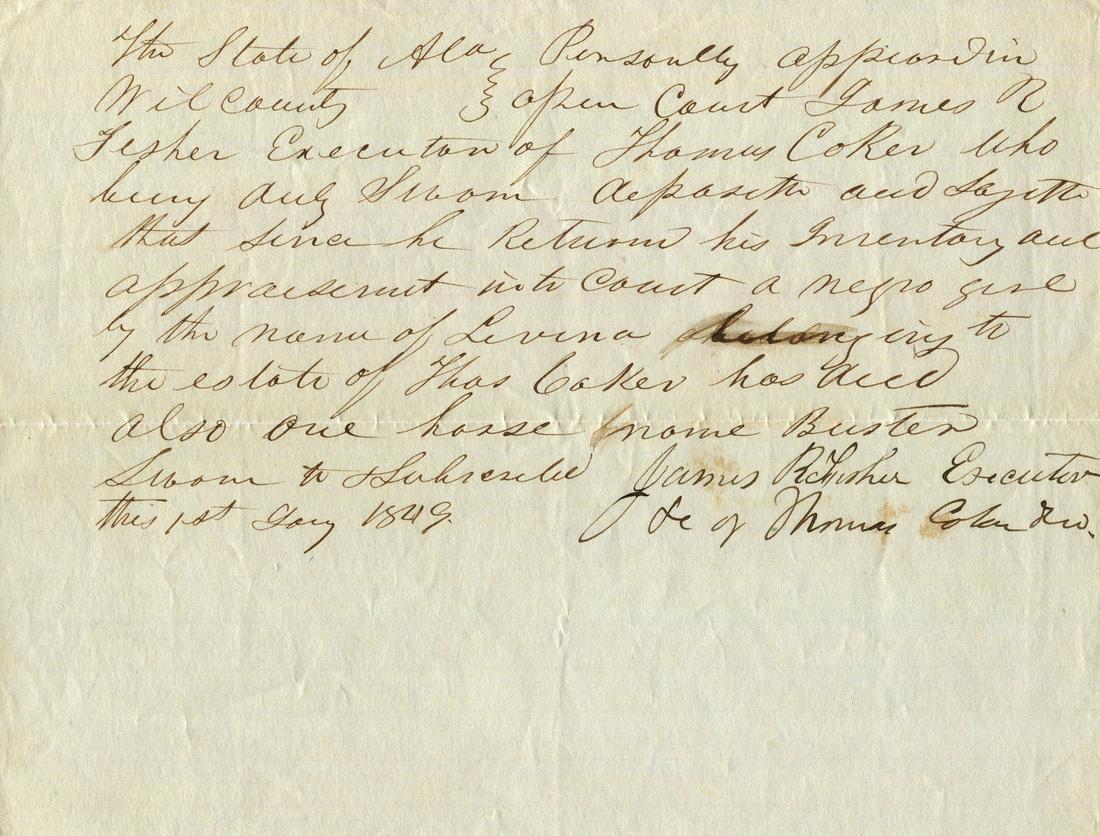 The State of Ala } Personally appeard in
Wil County } open Court James R
Fisher Executor of Thomas Coker who
being duly Sworn deposeth and Sayeth
that since he Returnd his Inventory and
appraisement into Court a negro girl
by the name of Levina belonging to
the estate of Thos Coker has died
also one horse name Buster
Sworn to & Subscribed James R Fisher Executor
this 1st Jany 1849. &c of Thomas Coker decd.